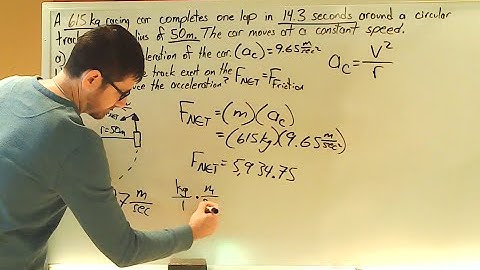 A 615 kg racing car completes one lap in 14.3 seconds around a circular
track radius of 50m. The car moves at a constant speed.
acceleration of the car. (ac) = 9.65 m/sec²
track exert on the FNET = FFriction
the acceleration?
ac = V²/r
FNET = (m)(ac)
= (615 kg)(9.65 m/sec²)
FNET = 5,934.75
r=50m
7 m/sec
kg/1 · m